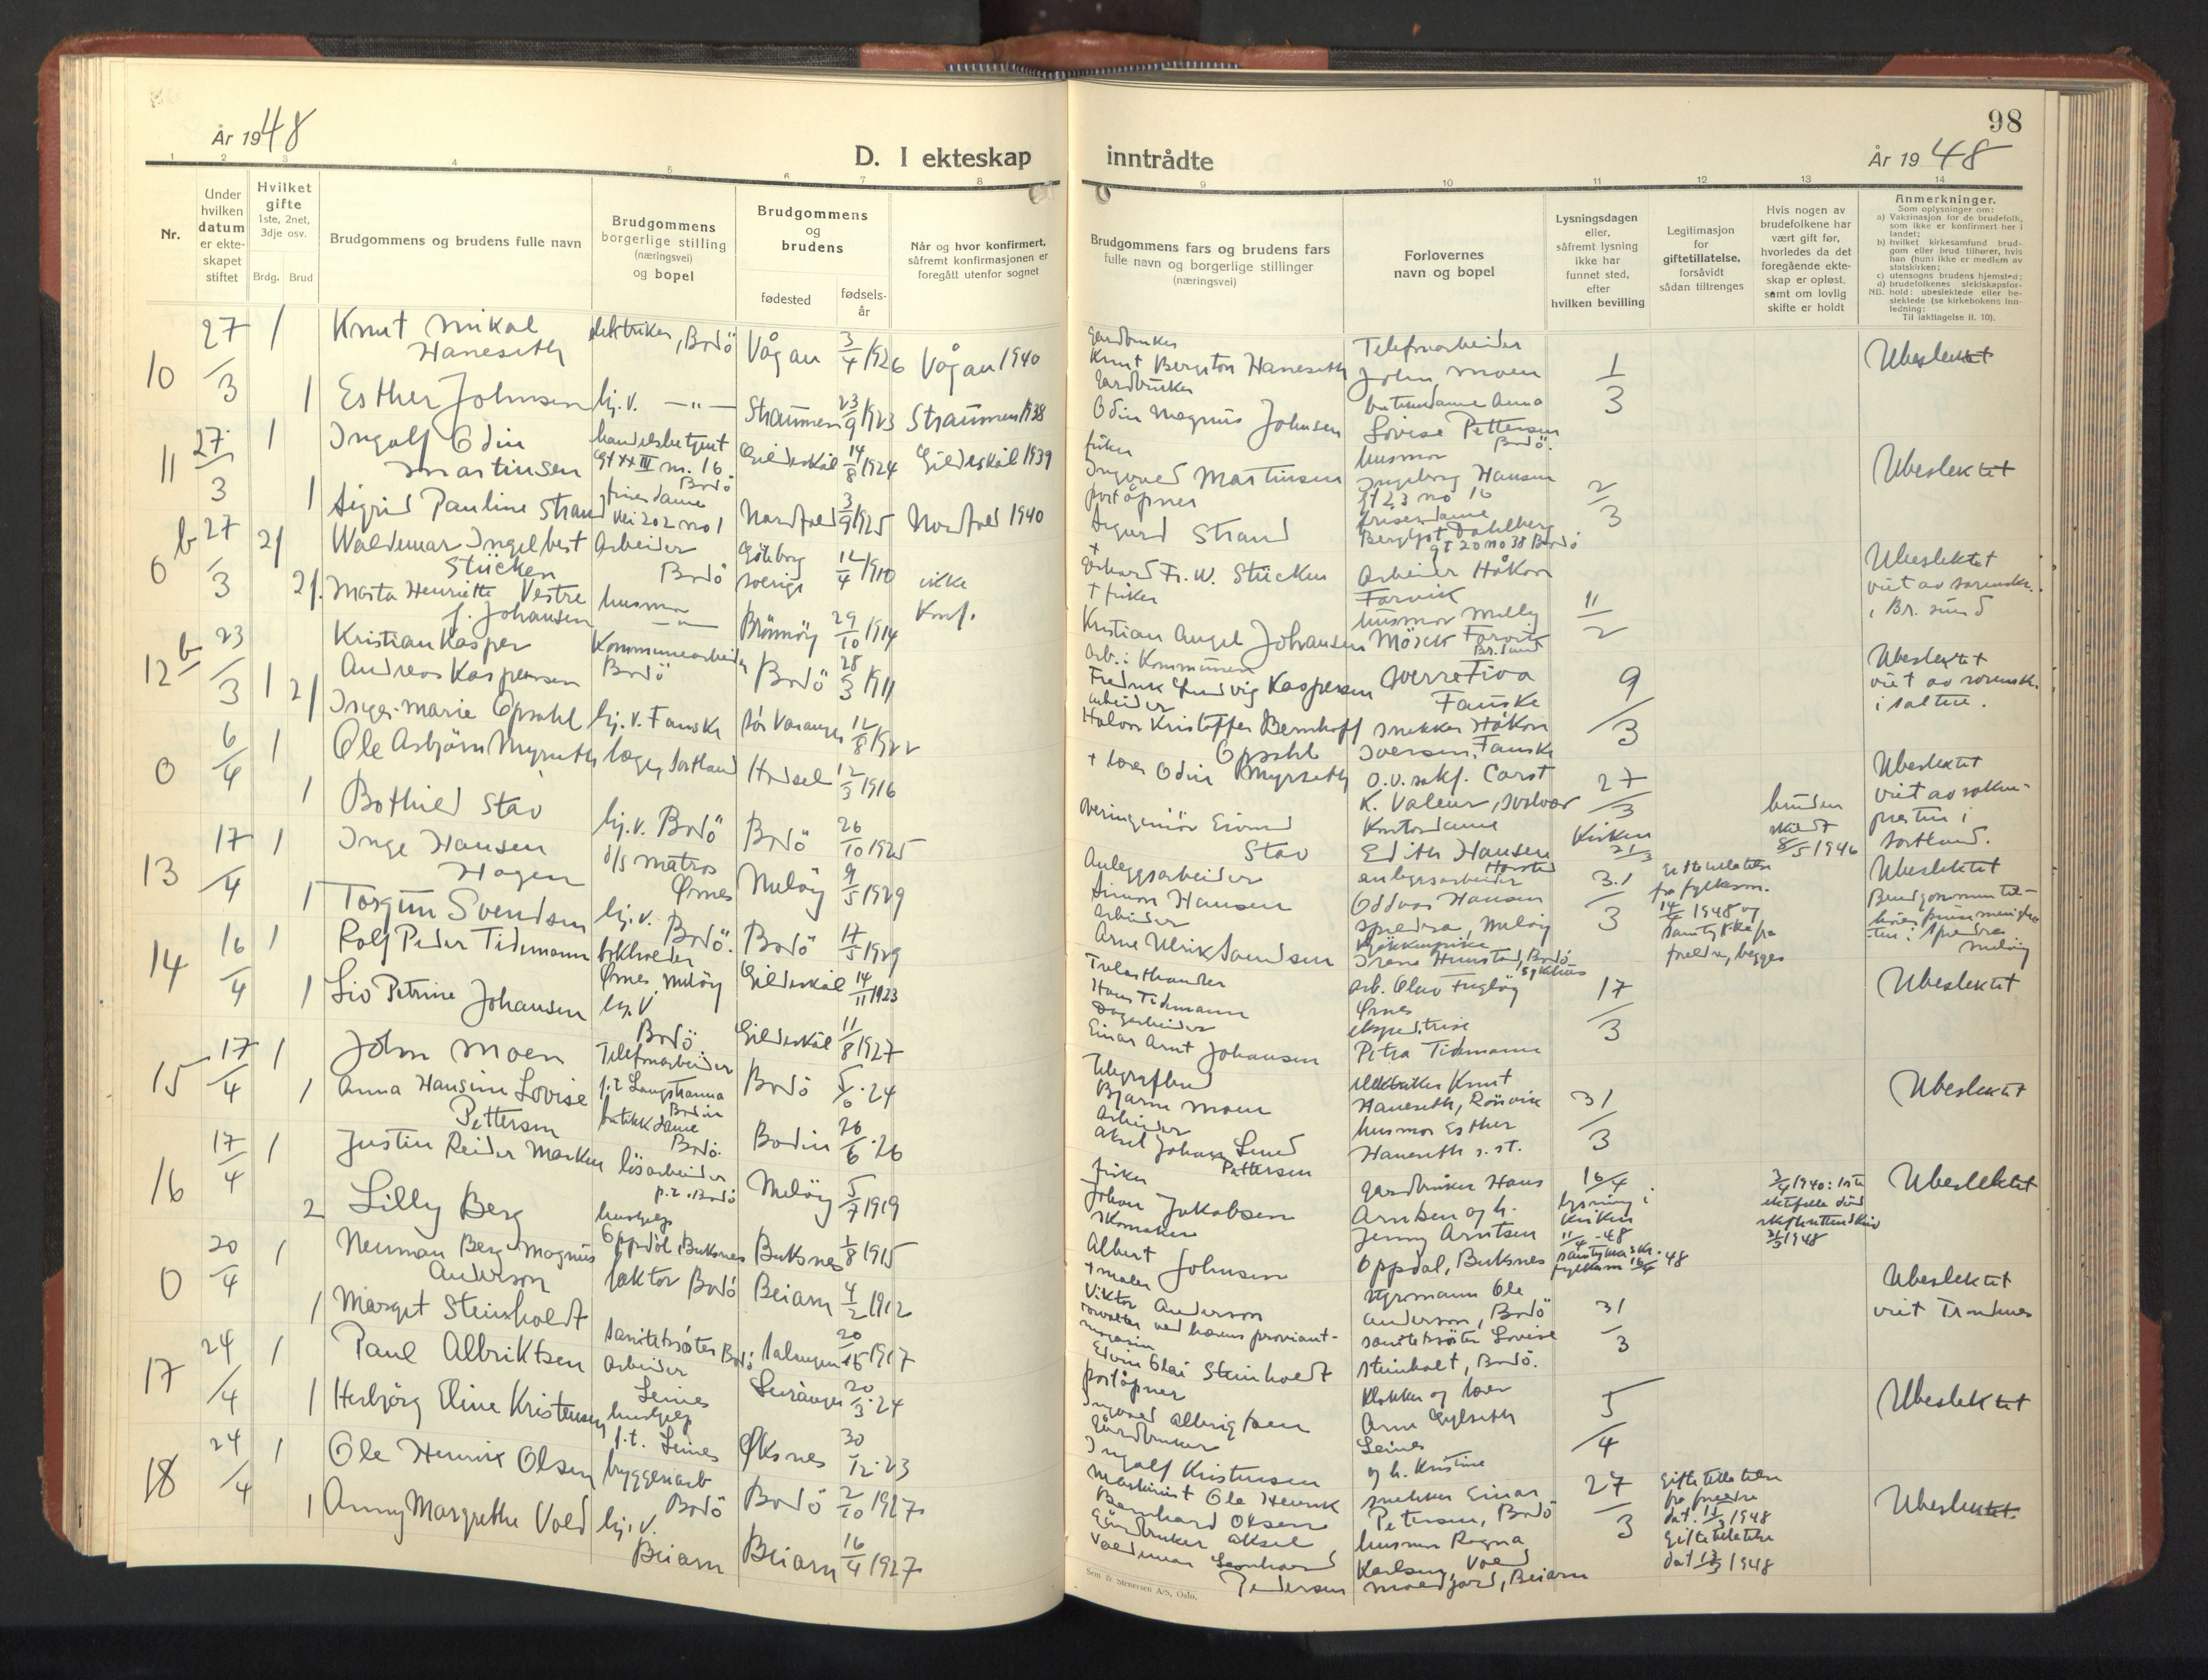 År 1948
D. I ekteskap
1 2 3 4 5 6 7 8
Nr.
Under hvilken datum er ekte-skapet stiftet
Hvilket gifte
1ste, 2net, 3dje osv.
Brdg. Brud
Brudgommens og brudens fulle navn
Brudgommens borgerlige stilling (næringsvei) og bopel
Brudgommens og brudens
fødested
fødsels-år
Når og hvor konfirmert, såfremt konfirmasjonen er foregått utenfor sognet
10 27/3 1 Knut Mikal Haneseth elektriker, Bodö Vågan 3/4 1926 Vågan 1940
1 Esther Johnsen hj.v. —"— Straumen 23/9 1923 Straumen 1938
11 27/3 1 Ingolf Odin Martinsen handelsbetjent gt XXIII nr. 16 Bodö Gildeskål 14/8 1924 Gildeskål 1939
1 Sigrid Pauline Strand frisérdame Vei 202 no 1 Nordfold 3/9 1925 Nordfold 1940
0 b 27/3 2/ Waldemar Ingelbert Stücken Arbeider Bodö Göteborg Sverige 12/4 1910 ikke Konf.
2/. Marta Henriette Vestre f. Johansen husmor —"— Brönnöy 29/10 1914
12 b 23/3 1 Kristian Kasper Andreas Kaspersen Kommunearbeider Bodö Bodö 28/3 1911
2/ Inger-Marie Opsahl hj.v. Fauske Sör Varanger 12/8 1922
0 6/4 1 Ole Asbjörn Myrseth læge, Sortland Hadsel 12/3 1916
1 Bothild Stav hj.v. Bodö Bodö 26/10 1925
13 17/4 1 Inge Hansen Hagen d/s matros Ørnes Meløy 9/5 1929
1 Torgun Svendsen hj.v. Bodö. Bodö 4/5 1929
14 16/4 1 Rolf Peder Tidemann bokholder Ørnes, Meløy Gildeskål 14/11 1923
1 Liv Petrine Johansen hj.v Bodö. Gildeskål 11/8 1927
15 17/4 1 John Moen Telefonarbeider f.t. Langstranna Bodin Bodö 5/6.24
1 Anna Hansine Lovise Pettersen butikkdame Bodö. Bodin 26/6.26
16 17/4 1 Justin Reidar Markus lösarbeider p.t. Bodö Meløy 5/7 1919
2 Lilly Berg hushjelp Oppdöl, Buksnes Buksnes 1/8 1915
0 20/4 1 Neuman Berg Magnus Anderson lektor Bodö Beiarn 4/2 1912
1 Marget Steinholdt Sanitetssöster Bodö Salangen 20/5 1917
17 24/4 1 Paul Albriktsen Arbeider Leines Leiranger 20/3.24
1 Herbjörg Eline Kristensen hushjelp f.t. Leines Øksnes 30/12.23
18 24/4 1 Ole Henrik Olsen bryggeriarb Bodö Bodö 2/10 1927
1 Anny Margrethe Vold hj.v. Beiarn Beiarn 16/4 1927
inntrådte
98
År 1948
9 10 11 12 13 14
Brudgommens fars og brudens fars fulle navn og borgerlige stillinger (næringsvei)
Forlovernes navn og bopel
Lysningsdagen eller, såfremt lysning ikke har funnet sted, efter hvilken bevilling
Legitimasjon for giftetillatelse, forsåvidt sådan tiltrenges
Hvis nogen av brudefolkene har vært gift før, hvorledes da det foregående ekte-skap er opløst, samt om lovlig skifte er holdt
Anmerkninger.
Som oplysninger om:
a) Vaksinasjon for de brudefolk, som ikke er konfirmert her i landet;
b) hvilket kirkesamfund brud-gom eller brud tilhører, hvis han (hun) ikke er medlem av statskirken;
c) utensogns brudens hjemsted;
d) brudefolkenes slektskapsfor-hold: ubeslektede eller be-slektede (se kirkebokens inn-ledning:
NB.
Til iakttagelse II. 10).
Gardbruker Knut Bergiton Haneseth
Telefonarbeider John Moen
1/3
Ubeslektet
Gardbruker Odin Magnus Johnsen
butikkdame Anna Lovise Pettersen Bodö.
fisker Ingvard Martinsen
husmor Ingeborg Hansen gt 23 no 16
2/3
Ubeslektet
poståpner Sigurd Strand
Frisérdame Bergljot Dahlberg gt 20 no 38 Bodö
+ Fr. W. Stücken
Arbeider Håkon Farvik
11/2
Ubeslektet viet av sorenskr. i Br. sund
+ fisker Kristian Angel Johansen
husmor Milly Mörck Farvik Br.sund
Arb. i Kommunen Fredrik Ludvig Kaspersen
Sverre Fiva Fauske
9/3
Ubeslektet viet av sorensk. i Salten.
arbeider Halvor Kristoffer Bernhoff Opsahl
snekker Håkon Iversen, Fauske
+ lærer Odin Myrseth
O.r.sakf. Carst K. Valeur, Svolvær
27/3
bruden skildt 8/5 1946
Ubeslektet viet av sokne-presten i Sortland.
Overingeniör Eivind Stav
Kontordame Edith Hansen Harstad
Anleggsarbeider Simon Hansen
anleggsarbeider Oddvar Hansen Spildra, Meløy
Kirken 21/3
31/3
Giftetillatelse fra fylkesm. 14/4 1948 og samtykke fra foreldre, begges
Ubeslektet Brudgommen til-hører pinsemenighe-ten i Spildra Meløy
Arbeider Arne Ulrik Svendsen
Kjökkenpike Irene Hunstad, Bodö sykehus
Trelasthandler Hans Tidemann
Arb. Olav Fugløy Ørnes
17/3
Ubeslektet
Dagarbeider Einar Arnt Johansen
ekspeditrise Petra Tidemann
Telegrafbud Bjarne Moen
elektriker Knut Haneseth, Rönvik
31/3
Ubeslektet
Arbeider Aksel Johan Lund Pettersen
husmor Esther Haneseth s.st.
fisker Johan Jakobsen
Gardbruker Hans Arntsen og h.
16/4 lysning i kirken 11/4 -48 samtykke skr. fylkesm 16/4 48
3/4 1940: 1ste ektefelle död 31/3 1948
Ubeslektet
Skomaker Albert Johnsen
Jenny Arntsen Oppdal, Buksnes
+ maler Viktor Anderson
styrmann Ole Anderson, Bodö
31/3
Ubeslektet viet Trondenes
forvalter ved hærens proviant-magasin Edvin Olai Steinholdt
sanitetssöster Lovise Steinholt, Bodö.
poståpner Ingvard Albrigtsen
Klokker og lærer Arne Gylseth Leines
5/4
Ubeslektet
Gårdbruker Ingolf Kristensen
og h. Kristine
Maskinist Ole Henrik Bernhard Olsen
snekker Einar Petersen, Bodö
27/3
Giftetillatelse fra foreldre dat. 11/3 1948 Giftetillatelse dat 12/3 1948
Ubeslektet.
Gårdbruker Aksel Valdemar Leonhard Pedersen
husmor Ragna Karlsen, Vold Moldjord, Beiarn
Sem & Stenersen A/S, Oslo.